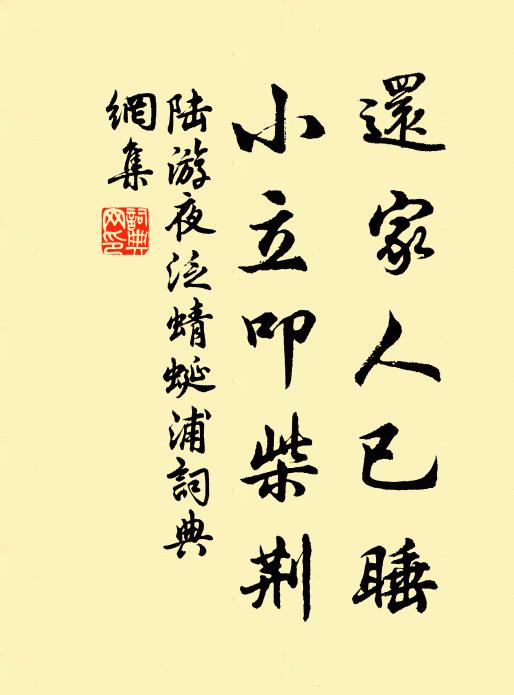 還家人已睡
小立叩柴荆
陆游夜泛蜻蜒浦詞典
網集
詞典网印